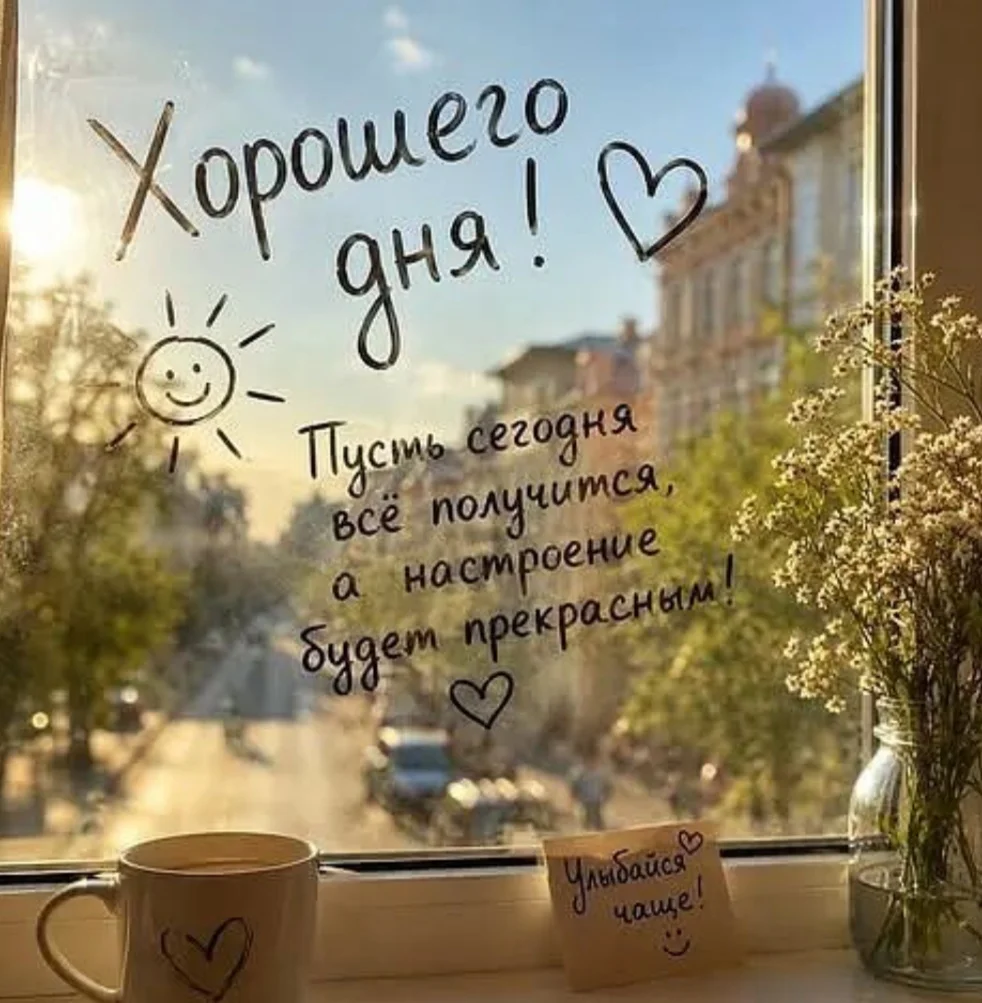 Хорошего
дня!
Пусть сегодня
всё получится,
а настроение
будет прекрасным!
Улыбайся
чаще!